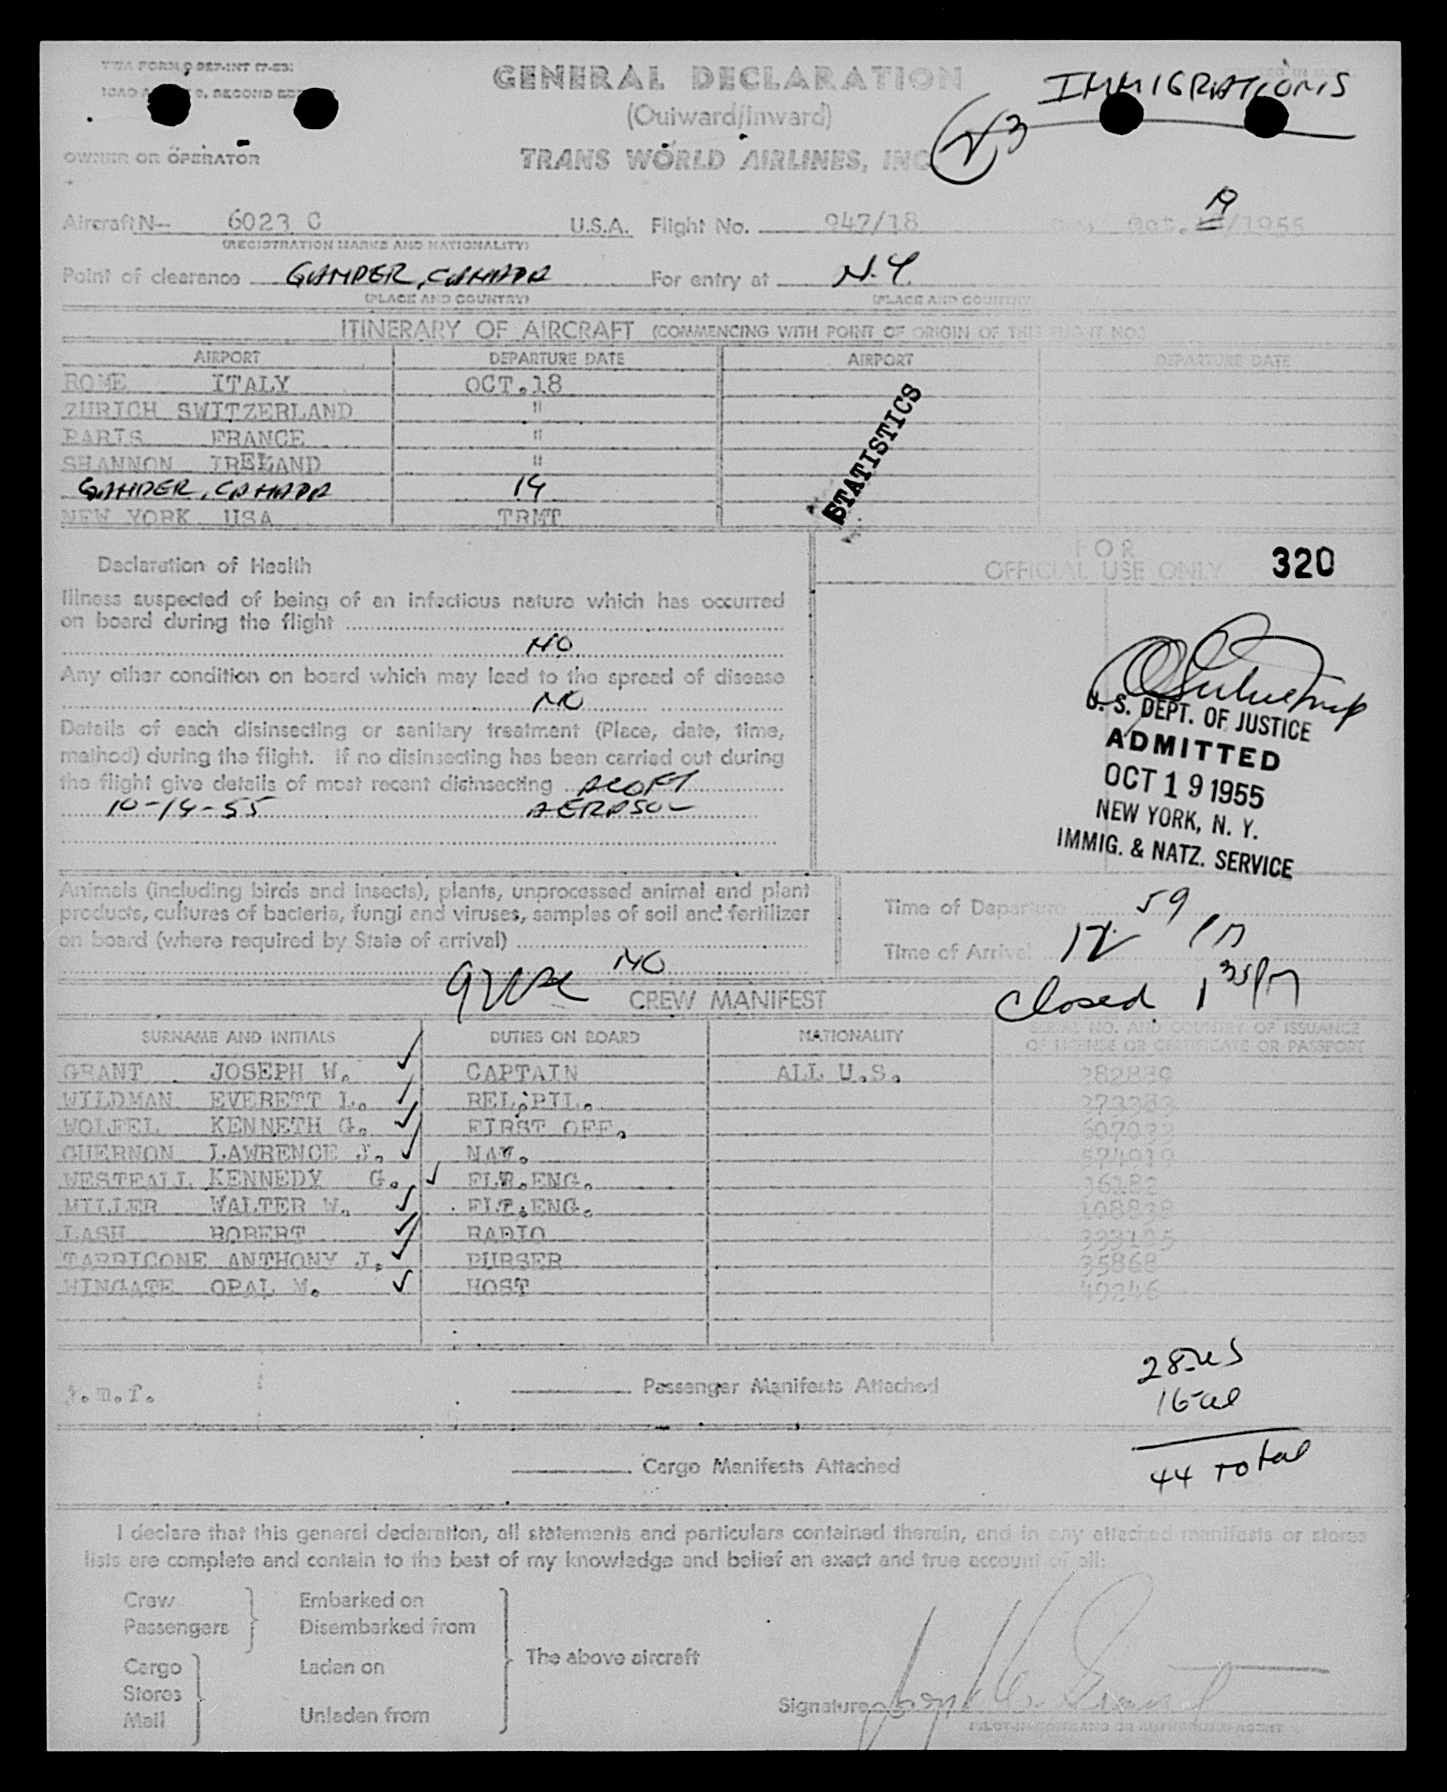 GENERAL DECLARATION
IMMIGRATIONS
(Outward/Inward)
OWNER OR OPERATOR TRANS WORLD AIRLINES, INC
Aircraft N-- 6023 C U.S.A. Flight No. 947/18 Oct. 19/1955
(REGISTRATION MARKS AND NATIONALITY)
Point of clearance GANDER, CANADA For entry at N.Y.
(PLACE AND COUNTRY) (PLACE AND COUNTRY)
ITINERARY OF AIRCRAFT (COMMENCING WITH POINT OF ORIGIN OF THIS FLIGHT NO.)
AIRPORT DEPARTURE DATE AIRPORT DEPARTURE DATE
ROME ITALY OCT.18
ZURICH SWITZERLAND "
PARIS FRANCE "
SHANNON IRELAND "
GANDER, CANADA 19
NEW YORK USA TRMT
STATISTICS
Declaration of Health
Illness suspected of being of an infectious nature which has occurred
on board during the flight
NO
Any other condition on board which may lead to the spread of disease
NO
Details of each disinsecting or sanitary treatment (Place, date, time,
method) during the flight. If no disinsecting has been carried out during
the flight give details of most recent disinsecting ALOFT
10-19-55 AEROSOL
FOR
OFFICIAL USE ONLY 320
U. S. DEPT. OF JUSTICE
ADMITTED
OCT 19 1955
NEW YORK, N. Y.
IMMIG. & NATZ. SERVICE
Animals (including birds and insects), plants, unprocessed animal and plant
products, cultures of bacteria, fungi and viruses, samples of soil and fertilizer
on board (where required by State of arrival)
NO
Time of Departure
Time of Arrival 12 59 PM
Closed 1 35 PM
CREW MANIFEST
SURNAME AND INITIALS DUTIES ON BOARD NATIONALITY SERIAL NO. AND COUNTRY OF ISSUANCE
OF LICENSE OR CERTIFICATE OR PASSPORT
GRANT JOSEPH W. CAPTAIN ALL U.S. 282839
WILDMAN EVERETT L. REL.PIL.
WOLFEL KENNETH G. FIRST OFF.
GUERNON LAWRENCE J. NAV. 574919
WESTFALL KENNEDY G. FLT.ENG. 16182
MILLER WALTER W. FLT.ENG. 108838
LASH ROBERT RADIO
TARRICONE ANTHONY J. PURSER 35868
WINGATE OPAL M. HOST 49246
Passenger Manifests Attached
28-US
16-al
44 Total
Cargo Manifests Attached
I declare that this general declaration, all statements and particulars contained therein, and in any attached manifests or stores
lists are complete and contain to the best of my knowledge and belief an exact and true account of all:
Crew Embarked on
Passengers Disembarked from
The above aircraft
Cargo Laden on
Stores
Mail Unladen from
Signature Joseph W. Grant
PILOT-IN-COMMAND OR AUTHORIZED AGENT